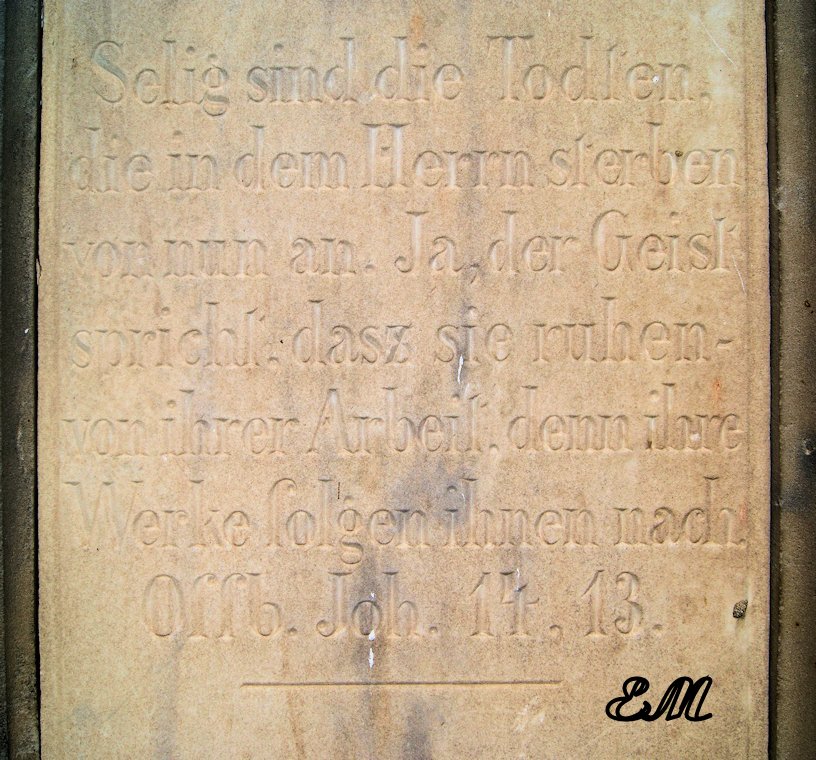 Selig sind die Todten,
die in dem Herrn sterben
von nun an. Ja, der Geist
spricht, dasz sie ruhen-
von ihrer Arbeit, denn ihre
Werke folgen ihnen nach.
Offb. Joh. 14, 13.
EM